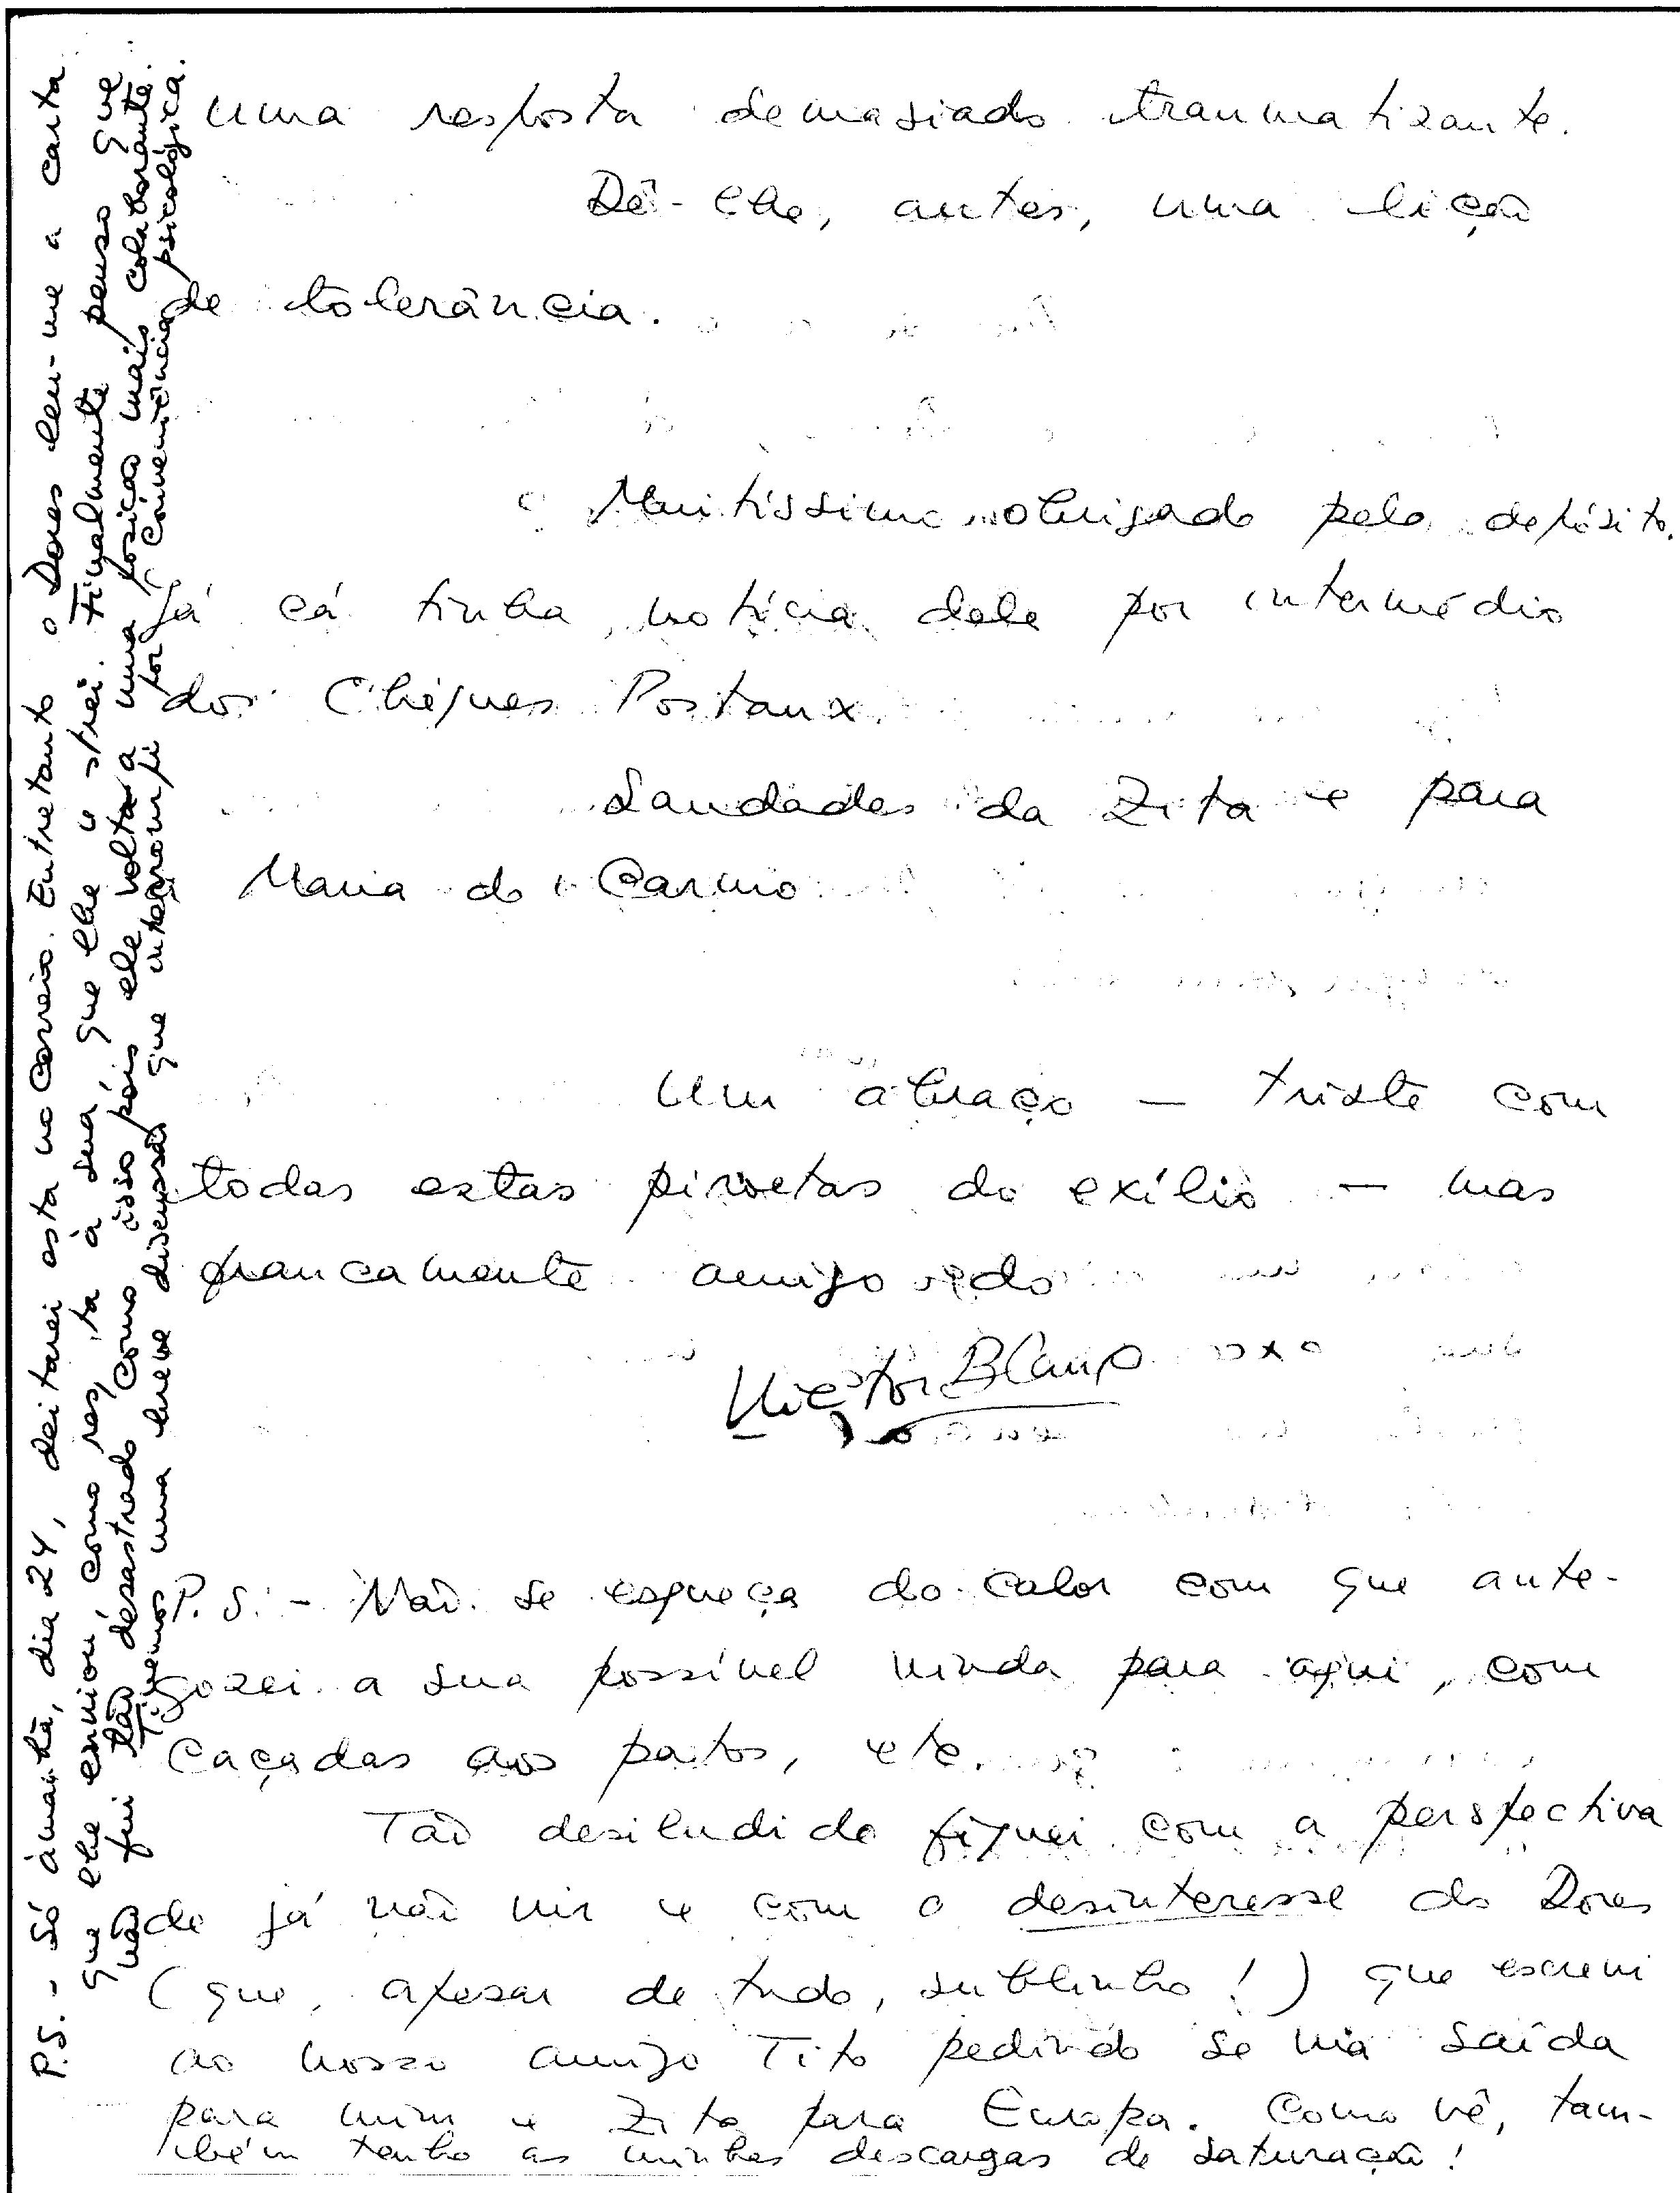 uma resposta demasiado traumatizante.
Dê-lhe, antes, uma lição
de tolerância.
Muitíssimo obrigado pelo depósito.
Já cá tinha notícia dele por intermédio
dos Chèques Postaux.
Saudades da Zita e para
Maria do Carmo
Um abraço — triste com
todas estas piruetas do exílio — mas
francamente amigo do
P.S. - Não se esqueça do calor com que ante-
gozei a sua possível vinda para aqui, com
caçadas aos patos, etc.
Tão desiludido fiquei com a perspectiva
de já não vir e com o desinteresse do Dores
(que, apesar de tudo, sublinho!) que escrevi
ao nosso amigo Tito pedindo se via saída
para mim e Zita para Europa. Como vê, tam-
bém tenho as minhas descargas de saturação!
P.S. - Só àmanhã, dia 24, deitarei esta no correio. Entretanto o Dores leu-me a carta
que lhe enviou, como resp.ta à sua, que lhe u strei. Finalmente penso que
não fui tão desastrado como isso pois ele volta a uma posição mais colaborante.
Tivemos uma breve discussão que interrompi por conveniência psicológica.